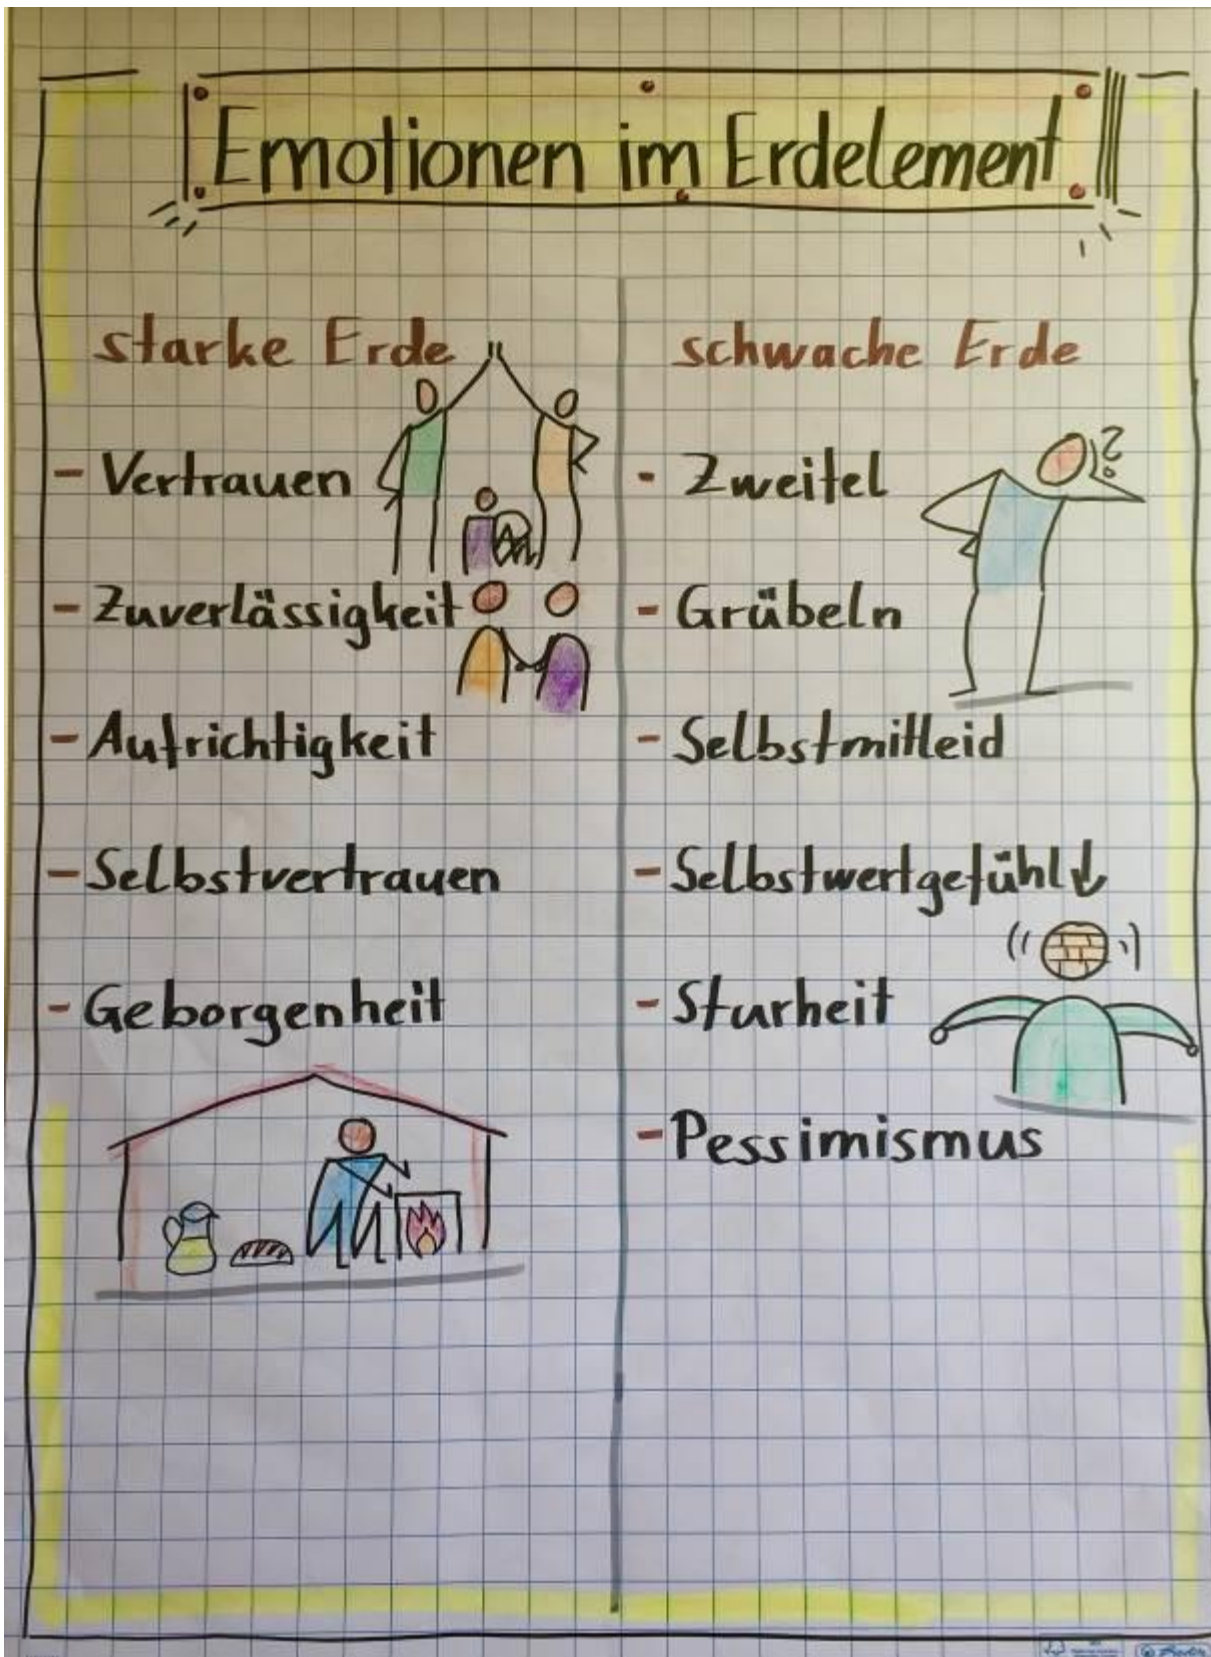 Emotionen im Erdelement
starke Erde
- Vertrauen
- Zuverlässigkeit
- Aufrichtigkeit
- Selbstvertrauen
- Geborgenheit
schwache Erde
?
- Zweifel
- Grübeln
- Selbstmitleid
- Selbstwertgefühl↓
- Sturheit
- Pessimismus